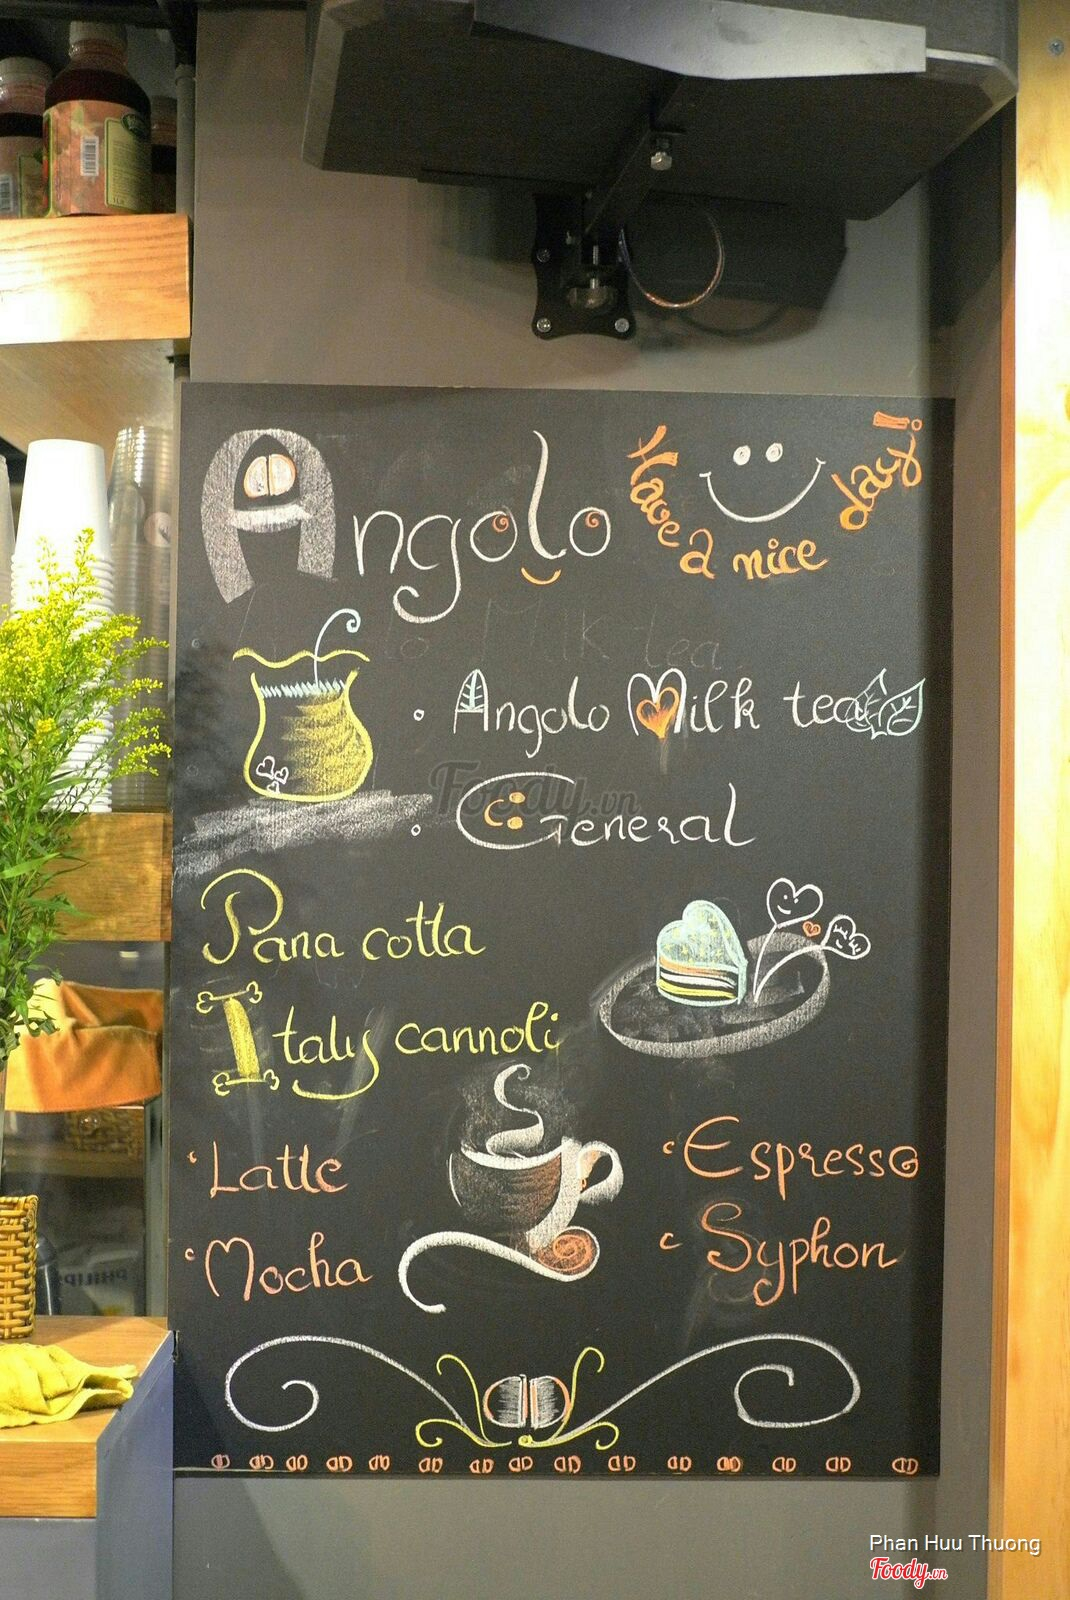 Angolo
Have a nice day!
Milk tea
• Angolo Milk tea
Foody.vn
• General
Pana cotta
Italy cannoli
Latte
Espresso
Mocha
Syphon
PHILIPS
Phan Huu Thuong
Foody.vn